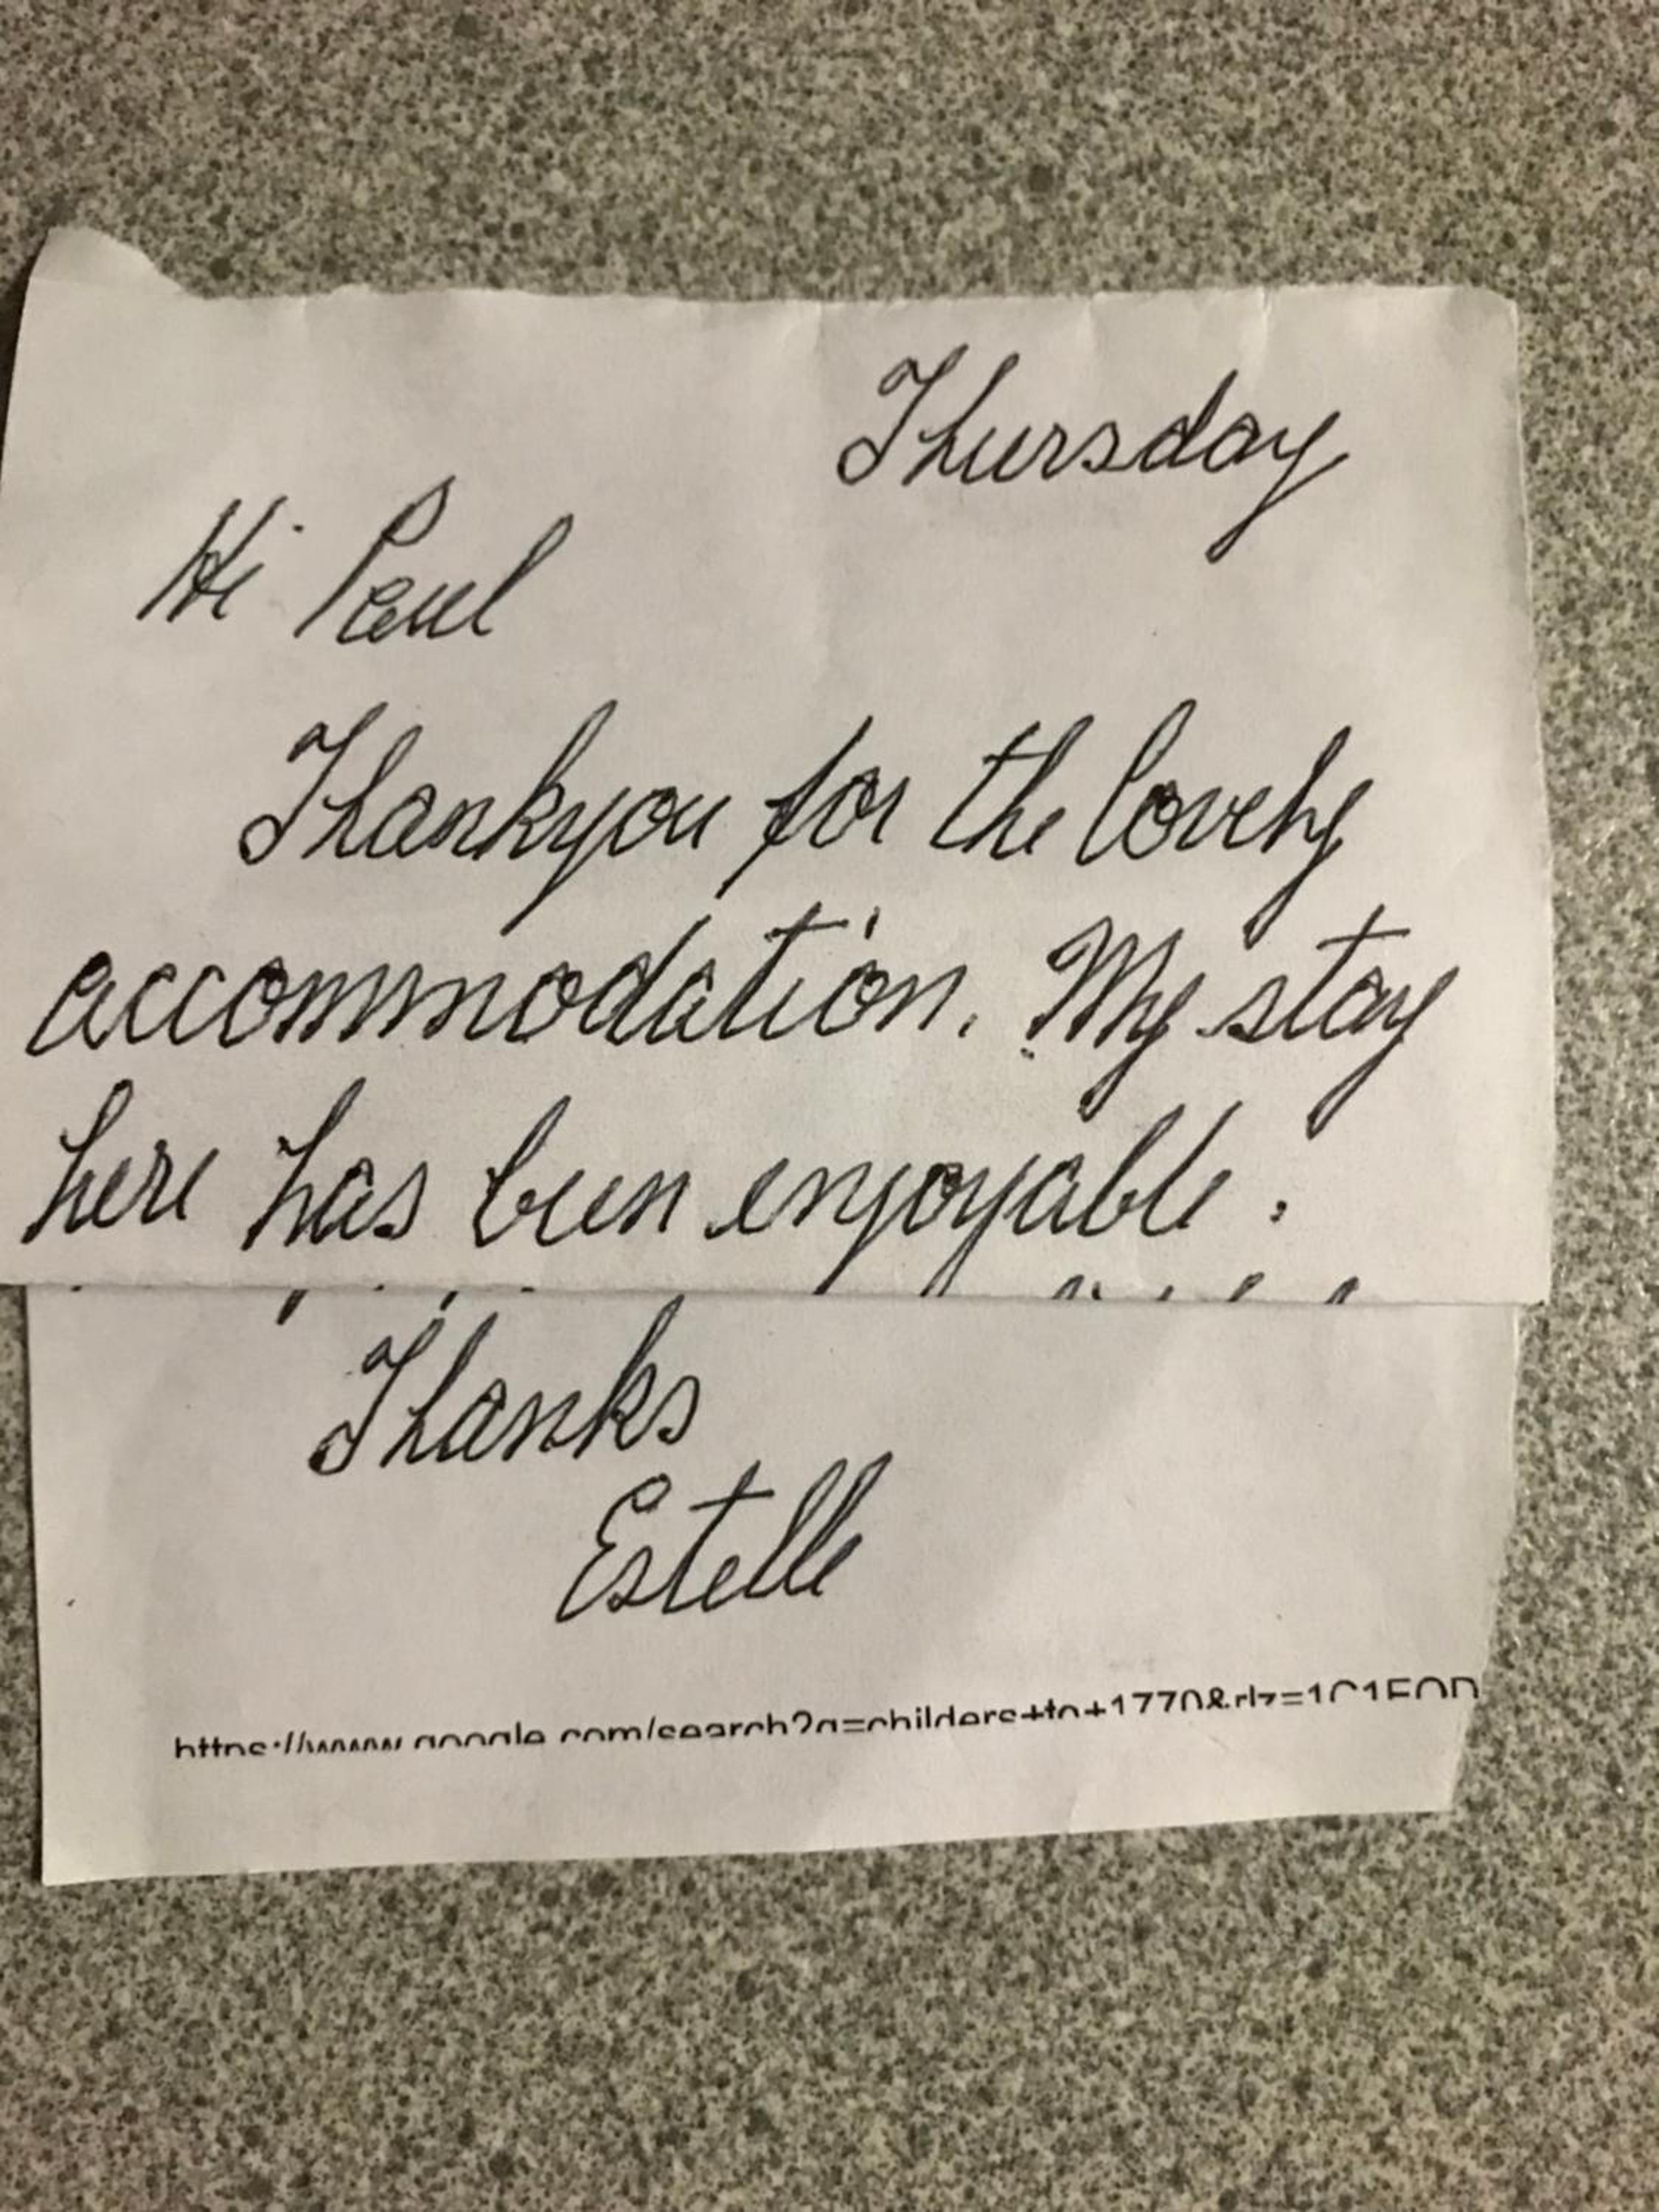 Thursday
Hi Paul
Thankyou for the lovely
accommodation. My stay
here has been enjoyable.
Thanks
Estelle
https://www.google.com/search?q=childers+to+1770&rlz=1C1